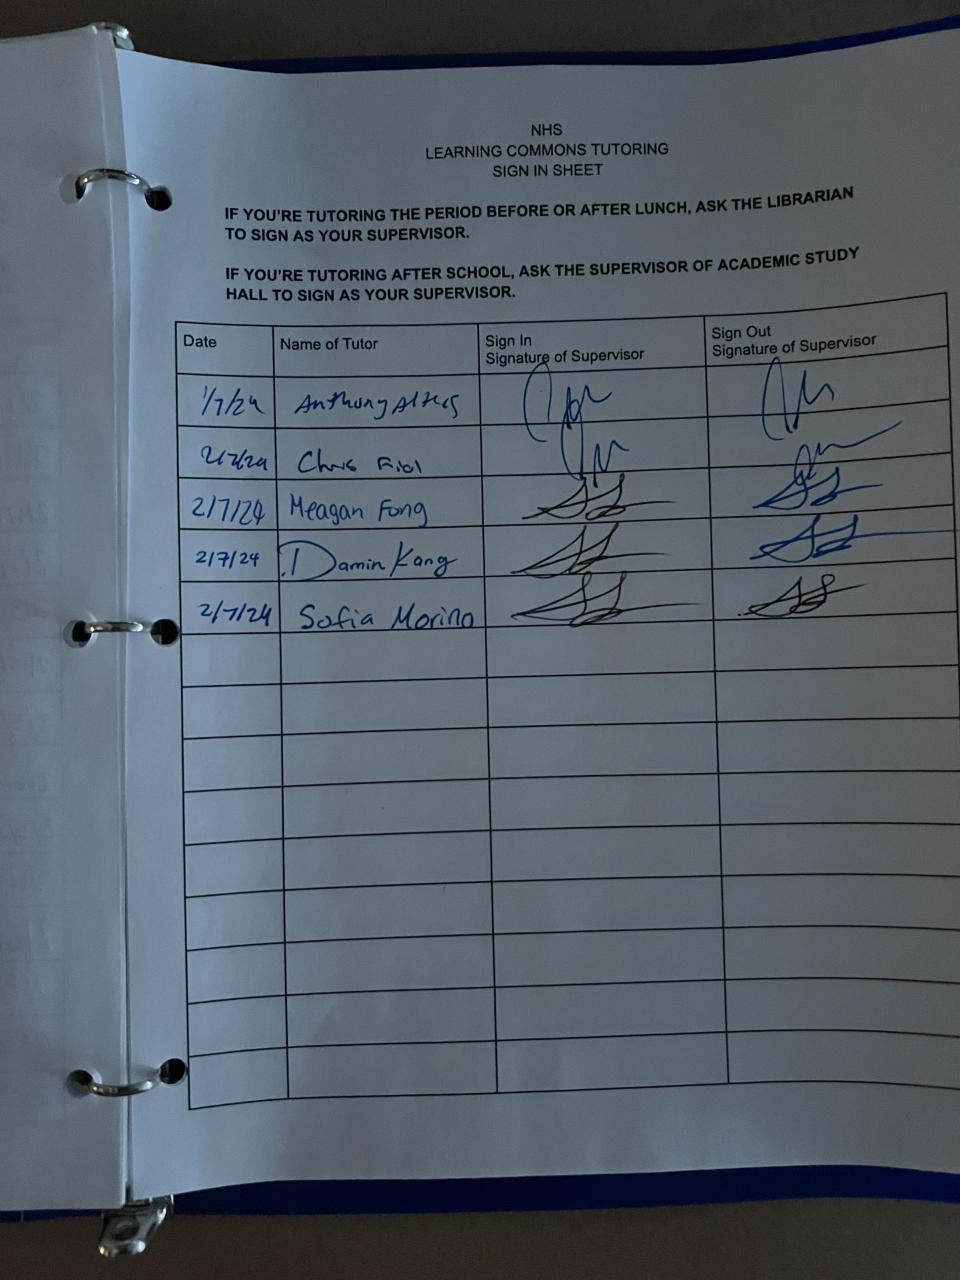 NHS
LEARNING COMMONS TUTORING
SIGN IN SHEET
IF YOU'RE TUTORING THE PERIOD BEFORE OR AFTER LUNCH, ASK THE LIBRARIAN
TO SIGN AS YOUR SUPERVISOR.
IF YOU'RE TUTORING AFTER SCHOOL, ASK THE SUPERVISOR OF ACADEMIC STUDY
HALL TO SIGN AS YOUR SUPERVISOR.
Date Name of Tutor Sign In Sign Out
Signature of Supervisor Signature of Supervisor
1/7/24 Anthony
2/7/24 Chris
2/7/24 Meagan Fong
2/7/24 Damin Kang
2/7/24 Sofia Morino